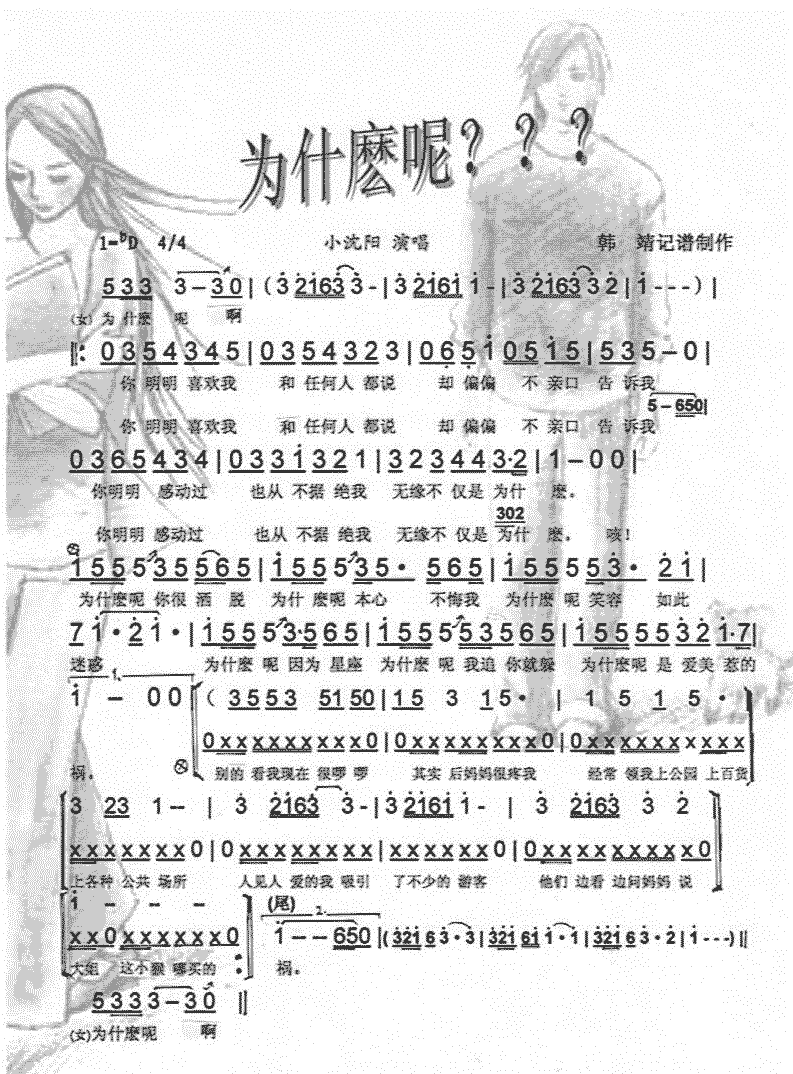 为什麽呢???
1=ᵇD 4/4 小沈阳 演唱 韩 靖记谱制作
5 3 3 3 – 3 0 | ( 3 2163 3 - | 3 2161 1 - | 3 2163 3 2 | 1 - - - ) |
(女) 为 什麽 呢 啊
‖: 0 3 5 4 3 4 5 | 0 3 5 4 3 2 3 | 0 6 5 1 0 5 1 5 | 5 3 5 – 0 |
你 明明 喜欢我 和 任何人 都说 却 偏偏 不 亲口 告 诉我
5 – 650 |
你 明明 喜欢我 和 任何人 都说 却 偏偏 不 亲口 告 诉我
0 3 6 5 4 3 4 | 0 3 3 1 3 2 1 | 3 2 3 4 4 3·2 | 1 – 0 0 |
你明明 感动过 也从 不据 绝我 无缘不 仅是 为什 麽。
302
你明明 感动过 也从 不据 绝我 无缘不 仅是 为什 麽。 咳!
1 5 5 5 3 5 5 6 5 | 1 5 5 5 3 5 · 5 6 5 | 1 5 5 5 5 3 · 2 1 |
为什麽呢 你很 洒 脱 为什 麽呢 本心 不悔我 为什麽 呢 笑容 如此
7 1 · 2 1 · | 1 5 5 5 3·5 6 5 | 1 5 5 5 5 3 5 6 5 | 1 5 5 5 5 3 2 1·7 |
迷惑 为什麽 呢 因为 星座 为什麽 呢 我追 你就躲 为什麽呢 是 爱美 惹的
1.
1 – 0 0 ( 3 5 5 3 51 50 | 1 5 3 1 5 · | 1 5 1 5 ·
0 x x x x x x x x 0 | 0 x x x x x x x 0 | 0 x x x x x x x x x
祸。 别的 看我现在 很啰 啰 其实 后妈妈很疼我 经常 领我上公园 上百货
3 23 1 – – | 3 2163 3 - | 3 2161 1 - | 3 2163 3 2
x x x x x x x 0 | 0 x x x x x x x | x x x x x x 0 | 0 x x x x x x x x 0
上各种 公共 场所 人见人 爱的我 吸引 了不少的 游客 他们 边看 边问妈妈 说
1 – – – (尾) 2.
x x 0 x x x x x x 0 : 1 – – 650 | ( 321 6 3 · 3 | 321 61 1 · 1 | 321 6 3 · 2 | 1 - - - ) ‖
大姐 这小猴 哪买的 祸。
5 3 3 3 3 – 3 0 ‖
(女)为什麽呢 啊